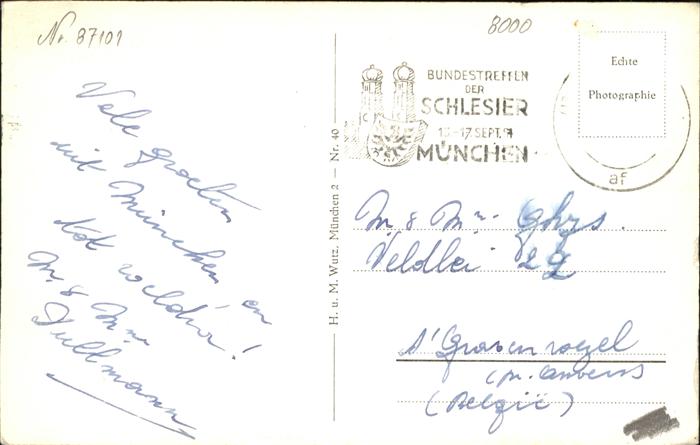 Nr. 37101
8000
Vele groeten
uit München, en
tot weldra!
M. & Mme
Dullmann
H. u. M. Wutz, München 2 – Nr. 40
BUNDESTREFFEN
DER
SCHLESIER
-17. SEPT.
MÜNCHEN
Echte
Photographie
af
M. & Mme Ghys.
Veldlei 22
s'Gravenwezel
(pr. Anvers
(België)